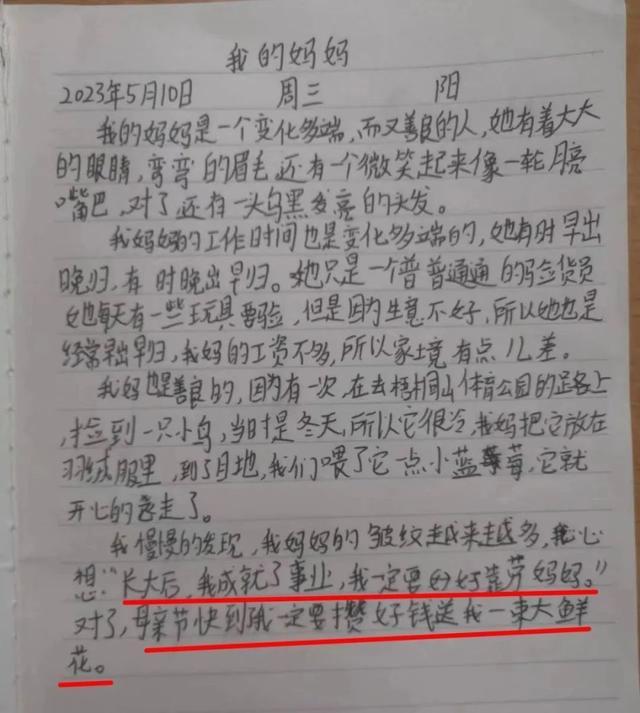 我的妈妈
2023年5月10日 周三 阳
我的妈妈是一个变化多端,而又善良的人,她有着大大
的眼睛,弯弯的眉毛,还有一个微笑起来像一轮月亮
嘴巴,对了还有一头乌黑发亮的头发。
我妈妈的工作时间也是变化多端的,她有时早出
晚归,有时晚出早归。她只是一个普普通通的验货员
她每天有一些玩具要验,但是因为生意不好,所以她也是
经常早出早归,我妈的工资不多,所以家境有点儿差。
我妈也是善良的,因为有一次,在去梧桐山体育公园的路上
,捡到一只小鸟,当时是冬天,所以它很冷,我妈把它放在
羽绒服里,到了目地,我们喂了它一点小蓝莓,它就
开心的飞走了。
我慢慢的发现,我妈妈的皱纹越来越多,我心
想:“长大后,我成就了事业,我一定要好好孝敬妈妈。”
对了,母亲节快到我一定要攒好钱送我一束大鲜
花。